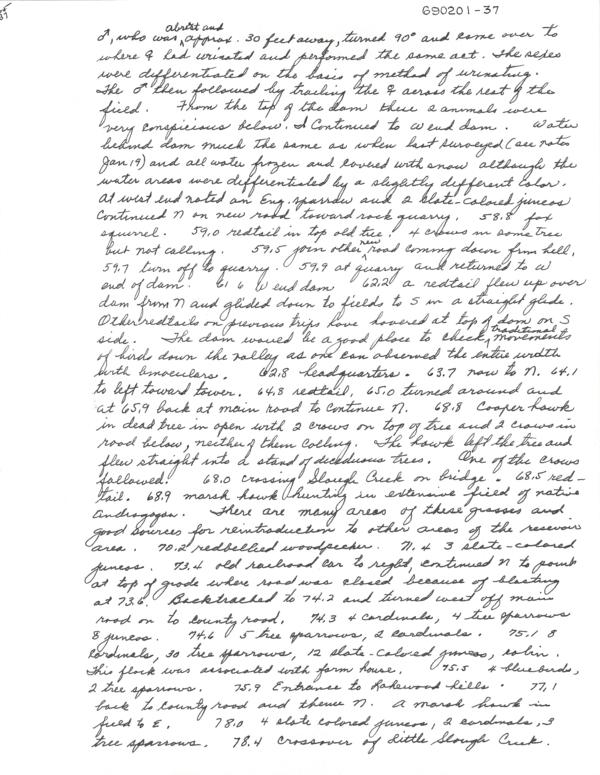 690201-37
abreast and
♂, who was ^ approx. 30 feet away, turned 90° and came over to
where ♀ had urinated and performed the same act. The sexes
were differentiated on the basis of method of urinating.
The ♂ then followed by trailing the ♀ across the rest of the
field. From the top of the dam these 2 animals were
very conspicious below. I Continued to W end dam. Water
behind dam much the same as when last surveyed (see notes
Jan 19) and all water frozen and covered with snow although the
water areas were differentiated by a slightly different color.
At west end noted an Eng. sparrow and 2 slate-colored juncos
Continued N on new road toward rock quarry. 58.8 fox
squirrel. 59.0 redtail in top old tree. 4 crows in same tree
but not calling. 59.5 join other ^new road coming down frm hill,
59.7 turn off to quarry. 59.9 at quarry and returned to W
end of dam. 61.6 W end dam 62.2 a redtail flew up over
dam from N and glided down to fields to S in a straight glide.
Other redtails on previous trips have hovered at top of dam on S
side. The dam would be a good place to check ^traditional movements
of birds down the valley as one can observed the entire width
with binoculars. 62.8 headquarters. 63.7 now to N. 64.1
to left toward tower. 64.8 redtail, 65.0 turned around and
at 65.9 back at main road to continue N. 68.8 Cooper hawk
in dead tree in open with 2 crows on top of tree and 2 crows in
road below, neither of them calling. The hawk left the tree and
flew straight into a stand of deciduous trees. One of the crows
followed. 68.0 crossing Slough Creek on bridge. 68.5 red-
tail. 68.9 marsh hawk hunting in extensive field of native
Andropogon. There are many areas of these grasses and
good sources for reintroduction to other areas of the reservoir
area. 70.2 redbellied woodpecker. N. & 3 slate-colored
juncos. 73.4 old railroad car to right, continued N to point
at top of grade where road was closed because of blasting
at 73.6. Backtracked to 74.2 and turned west off main
road on to county road. 74.3 4 cardinals, 4 tree sparrows
8 juncos. 74.6 5 tree sparrows, 2 cardinals. 75.1 8
Cardinals, 30 tree sparrows, 12 slate-colored juncos, robin.
This flock was associated with farm house. 75.5 4 bluebirds,
2 tree sparrows. 75.9 Entrance to Lakewood Hills. 77.1
back to county road and thence N. A marsh hawk in
field to E. 78.0 4 slate colored juncos, 2 cardinals, 3
tree sparrows. 78.4 crossover of Little Slough Creek.